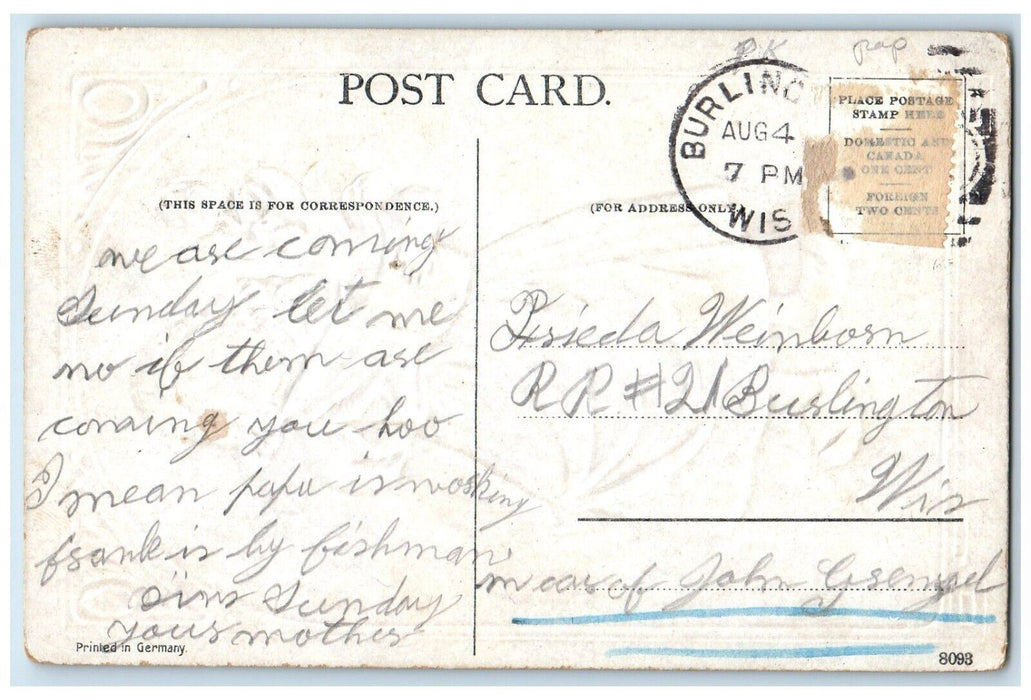 POST CARD.
BURLING
AUG 4
7 PM
WIS
PLACE POSTAGE
STAMP HERE
DOMESTIC AND
CANADA
ONE CENT
FOREIGN
TWO CENTS
(THIS SPACE IS FOR CORRESPONDENCE.)
we are coming
Sunday let me
no if them are
coming you hoo
I mean papa is working
frank is by fishman
Sunday
yours mother
Printed in Germany.
(FOR ADDRESS ONLY)
Frieda Weinborn
RR #21 Burlington
Wis
in car of John
8093